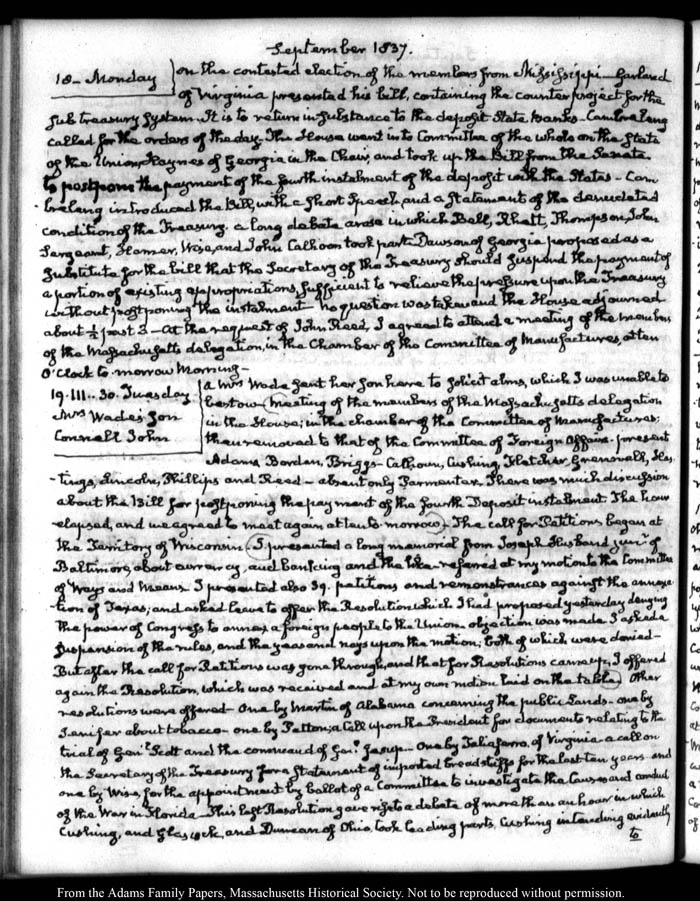 September 1837.
18- Monday
on the contested election of the members from Mississippi - Garland
of Virginia presented his bill, containing the counter project for the
sub treasury system. It is to return in substance to the deposit State Banks - Cambreleng
called for the orders of the day. The House went into Committee of the whole on the State
of the Union, Haynes of Georgia in the Chair, and took up the Bill from the Senate
to postpone the payment of the fourth instalment of the deposit with the States - Cam
breleng introduced the Bill, with a short Speech, and a Statement of the denudated
condition of the Treasury. a long debate arose in which Bell, Rhett, Thompson, John
Sergeant, Hamer, Wise, and John Calhoon took part. Dawson of Georgia proposed as a
substitute for the bill that the Secretary of the Treasury should suspend the payment of
a portion of existing appropriations, sufficient to relieve the pressure upon the Treasury
without postponing the instalment - no question was taken and the House adjourned
about ½ past 3 - At the request of John Reed, I agreed to attend a meeting of the members
of the Massachusetts delegation, in the Chamber of the Committee of Manufactures, at ten
O'Clock to morrow Morning -
19. III.. 30. Tuesday
Mrs Wade's Son
Connell John
a Mrs Wade sent her son here to solicit alms, which I was unable to
bestow - (meeting of the members of the Massachusetts delegation
in the House; in the chamber of the Committee of Manufactures;
then removed to that of the Committee of Foreign Affairs - present
Adams, Borden, Briggs - Calhoun, Cushing, Fletcher, Grennell, Has
-tings, Lincoln, Phillips and Reed - absent only Parmenter. There was much discussion
about the Bill for postponing the payment of the fourth Deposit instalment. The hour
elapsed, and we agreed to meet again at ten to morrow). The call for Petitions began at
the Territory of Wisconsin. (I presented a long memorial from Joseph Husband junr of
Baltimore, about currency, and banking and the like - referred at my motion to the Committee
of Ways and Means. I presented also 39. petitions and remonstrances against the annexa
-tion of Texas; and asked leave to offer the Resolution which I had proposed yesterday denying
the power of Congress to annex a foreign people to the Union - objection was made. I asked a
suspension of the rules, and the yeas and nays upon the motion; both of which were denied -
But after the call for Petitions was gone through, and that for Resolutions came up, I offered
again the Resolution, which was received and at my own motion laid on the table) Other
resolutions were offered - One by Martin of Alabama concerning the public Lands - one by
Jenifer about tobacco - one by Patton, a call upon the President for documents relating to the
trial of Genl Scott and the command of Genl Jesup - One by Taliaferro, of Virginia a call on
the Secretary of the Treasury for a Statement of imported breadstuffs for the last ten years - and
one by Wise, for the appointment by ballot of a Committee to investigate the Causes and conduct
of the War in Florida - This last Resolution gave rise to a debate of more than an hour in which
Cushing, and Glascock, and Duncan of Ohio, took leading parts. Cushing intending evidently
to
From the Adams Family Papers, Massachusetts Historical Society. Not to be reproduced without permission.